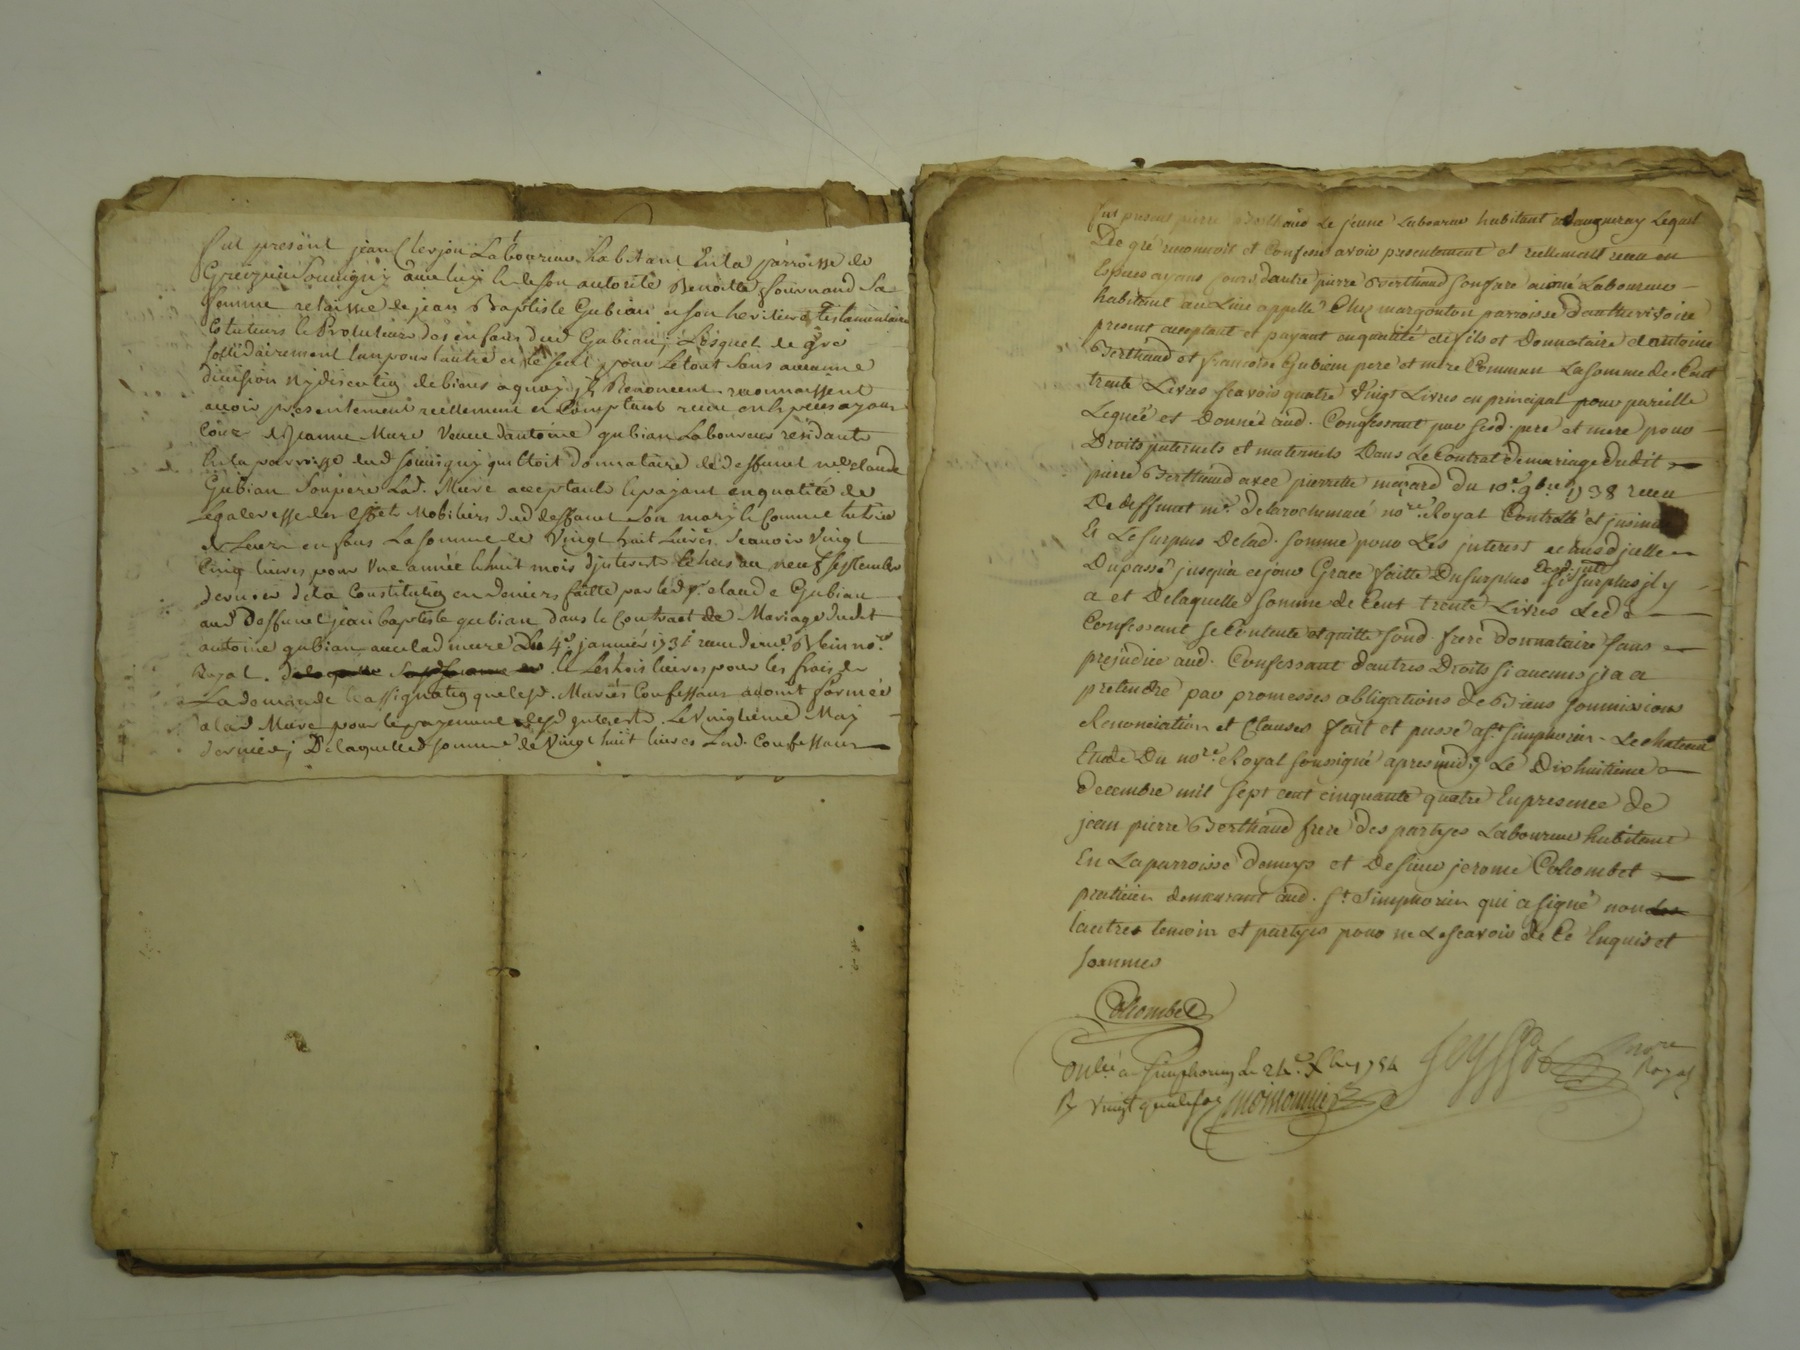 fut present jean Clerjon Laboureur habitant En la parroisse de
Grezieu Souvigny avec luy & de son autorité Benoitte fournand Sa
femme relaissée de jean Baptiste Gubian et son heritiere Testamentaire
les tuteurs & Protuteurs des enfans dud Gubian, Lesquels de gré
sollidairement lun pour lautre et le seul pour Le tout Sans aucune
division ny discution de biens a quoy ils Renoncent reconnoissent
avoir presentement reellement et Comptant recu en Especes ayant
Cours de jeanne Mure Veuve dantoine gubian Laboureur residante
En la parroisse dud Souvigny quittoit donnataire de deffunt Claude
Gubian Son pere Lad. Mure acceptante & payant en qualité de
Legateresse des effets Mobiliers dud deffunt Son mary & Comme tutrice
de Leurs enfans La somme de Vingt huit Livres, Scavoir Vingt
Cinq livres pour Une année & huit mois dinterests echus au neuf Septembre
dernier de la Constitution en deniers faitte par led Sr. Claude Gubian
aud Deffunt jean baptiste gubian dans le Contract de Mariage dudit
antoine gubian avec lad mure du 4e. janvier 1731 recu de me. Blein nore.
Royal. & Les trois livres pour les frais de
La demande & assignation que lesd. Mariés Confessans avoint formée
a lad Mure pour le payement desd interests. Le Vingtieme May
dernier; De laquelle somme de Vingt huit livres Lesd. Confessans
fut present pierre Berthaud Le jeune Laboureur habitant a Vaugneray Lequel
De gré reconnoit et Confesse avoir presentement et reellement receu en
Especes ayans Cours dautre pierre Berthaud Son frere ainé Laboureur
habitant au Lieu appellé Chez margouton parroisse dauthurivoire
present acceptant et payant en qualité de fils et Donnataire dantoine
Berthaud et francoise Gubian pere et mere Commun La somme de Cent
trente Livres scavoir quatre Vingt Livres en principal pour pareille
Leguée et Donnée aud. Confessant par Sesd. pere et mere pour
Droits paternels et maternels Dans Le Contrat de mariage dudit
pierre Berthaud avec pierrette mazard du 10e. 9bre 1738 receu
De deffunt me. delarochemacé nore. Royal Controllé et insinué
Et Le surplus de lad. somme pour Les interest de
Du passé jusqua ce jour Grace faitte Du surplus desd. jnts si surplus il y
a et De laquelle somme de Cent trente Livres Led.
Confessant se Contente et quitte sond. frere donnataire sans
prejudice aud. Confessant dautres Droits si aucuns il a a
pretendre par promesses obligations de Biens soumissions
Renonciation et Clauses fait et passé a St. Simphorien Le chateau
Etude Du nore. Royal soussigné apres midy Le Dixhuitieme
decembre mil sept cent cinquante quatre En presence de
jean pierre Berthaud frere des partyes Laboureur habitant
En La parroisse et De sieur jerome Colombet
praticien demeurant aud. St Simphorien qui a signé non
lautre temoin et partyes pour ne Le scavoir de Ce Enquis et
sommés
Colombet
Conlé a St Simphorien le 24e. Xbre 1754
R vingt quatre sols
nore
Royal